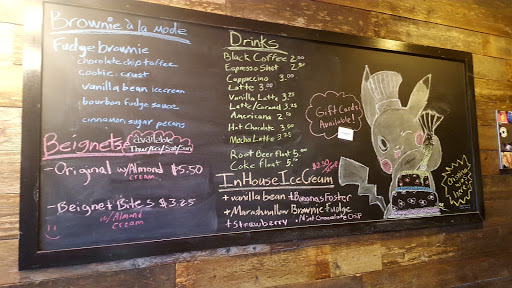 Brownie à la mode
Fudge brownie
chocolate chip toffee
cookie crust
vanilla bean icecream
bourbon fudge sauce
cinnamon sugar pecans
Beignets
available
Thur/Fri/Sat/Sun
- Original w/Almond $5.50
cream
- Beignet Bites $3.25
w/Almond
cream
Drinks
Black Coffee 2.00
Espresso Shot 2.50
Cappuccino 3.00
Latte 3.00
Vanilla Latte 3.25
Latte/Caramel 3.25
Americana 2.50
Hot Chocolate 3.00
Mocha Latte 3.25
Root Beer float 5.00
Coke float 5.00
In House Ice Cream
$2.50
+ vanilla bean + Bananas Foster
+ Marshmallow Brownie fudge
+ Strawberry + Mint Chocolate Chip
Gift Cards
Available!